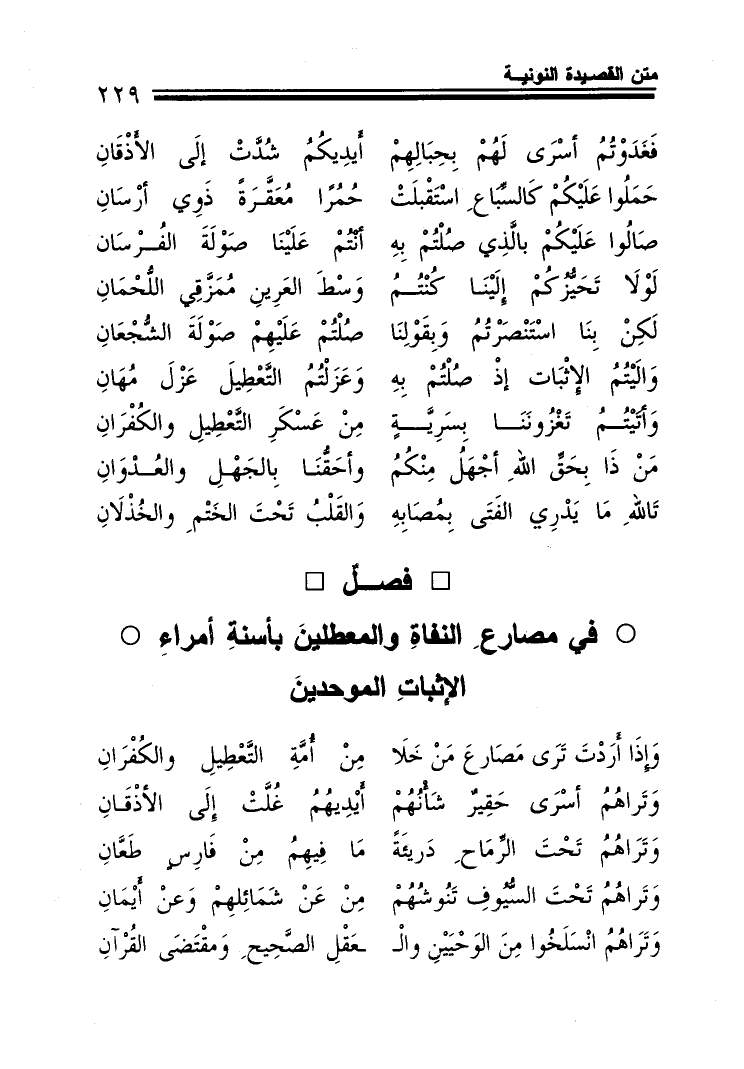 متن القصيدة النونية
٢٢٩
فَغَدَوْتُمُ أسْرَى لَهُمْ بِحِبَالِهِمْ أَيدِيكُمُ شُدَّتْ إلَى الأَذْقَانِ
حَمَلُوا عَلَيْكُمْ كَالسِّبَاعِ اسْتَقْبلَتْ حُمُرًا مُعَقَّرَةً ذَوِي أرْسَانِ
صَالُوا عَلَيْكُمْ بالَّذِي صُلْتُمْ بِهِ أنْتُمْ عَلَيْنَا صَوْلَةَ الفُرْسَان
لَوْلَا تَحَيُّزُكُمْ إلَيْنَا كُنْتُمُ وَسْطَ العَرِينِ مُمَزَّقِي اللُّحْمَانِ
لَكِنْ بِنَا اسْتَنْصَرْتُمُ وَبِقَوْلِنَا صُلْتُمْ عَلَيْهِمْ صَوْلَةَ الشُّجْعَانِ
وَالَيْتُمُ الإِثْبَات إذْ صُلْتُمْ بِهِ وَعَزَلْتُمُ التَّعْطِيلَ عَزْلَ مُهَانِ
وَأَتَيْتُمُ تَغْزُونَنَا بِسَرِيَّةٍ مِنْ عَسْكَرِ التَّعْطِيلِ والكُفْرَانِ
مَنْ ذَا بِحَقِّ اللهِ أجْهَلُ مِنْكُمُ وأحَقُّنَا بِالجَهْلِ والعُدْوَانِ
تَاللهِ مَا يَدْرِي الفَتَى بِمُصَابِهِ وَالقَلْبُ تَحْتَ الخَتْمِ والخُذْلَانِ
□ فصلٌ □
○ في مصارعِ النفاةِ والمعطلينَ بأسنةِ أمراءِ ○
الإثباتِ الموحدينَ
وَإِذَا أَرَدْتَ تَرَى مَصَارِعَ مَنْ خَلَا مِنْ أُمَّةِ التَّعْطِيلِ والكُفْرَانِ
وَتَراهُمُ أسْرَى حَقِيرٌ شَأْنُهُمْ أَيْدِيهُمُ غُلَّتْ إِلَى الأذْقَانِ
وَتَرَاهُمُ تَحْتَ الرِّمَاحِ دَرِيئَةً مَا فِيهِمُ مِنْ فَارِسٍ طَعَّانِ
وَتَراهُمُ تَحْتَ السُّيُوفِ تَنُوشُهُمْ مِنْ عَنْ شَمَائِلهِمْ وَعَنْ أَيْمَانِ
وَتَرَاهُمُ انْسَلَخُوا مِنَ الوَحْيَيْنِ والْـ ـعَقْلِ الصَّحِيحِ وَمُقْتَضَى القُرْآنِ